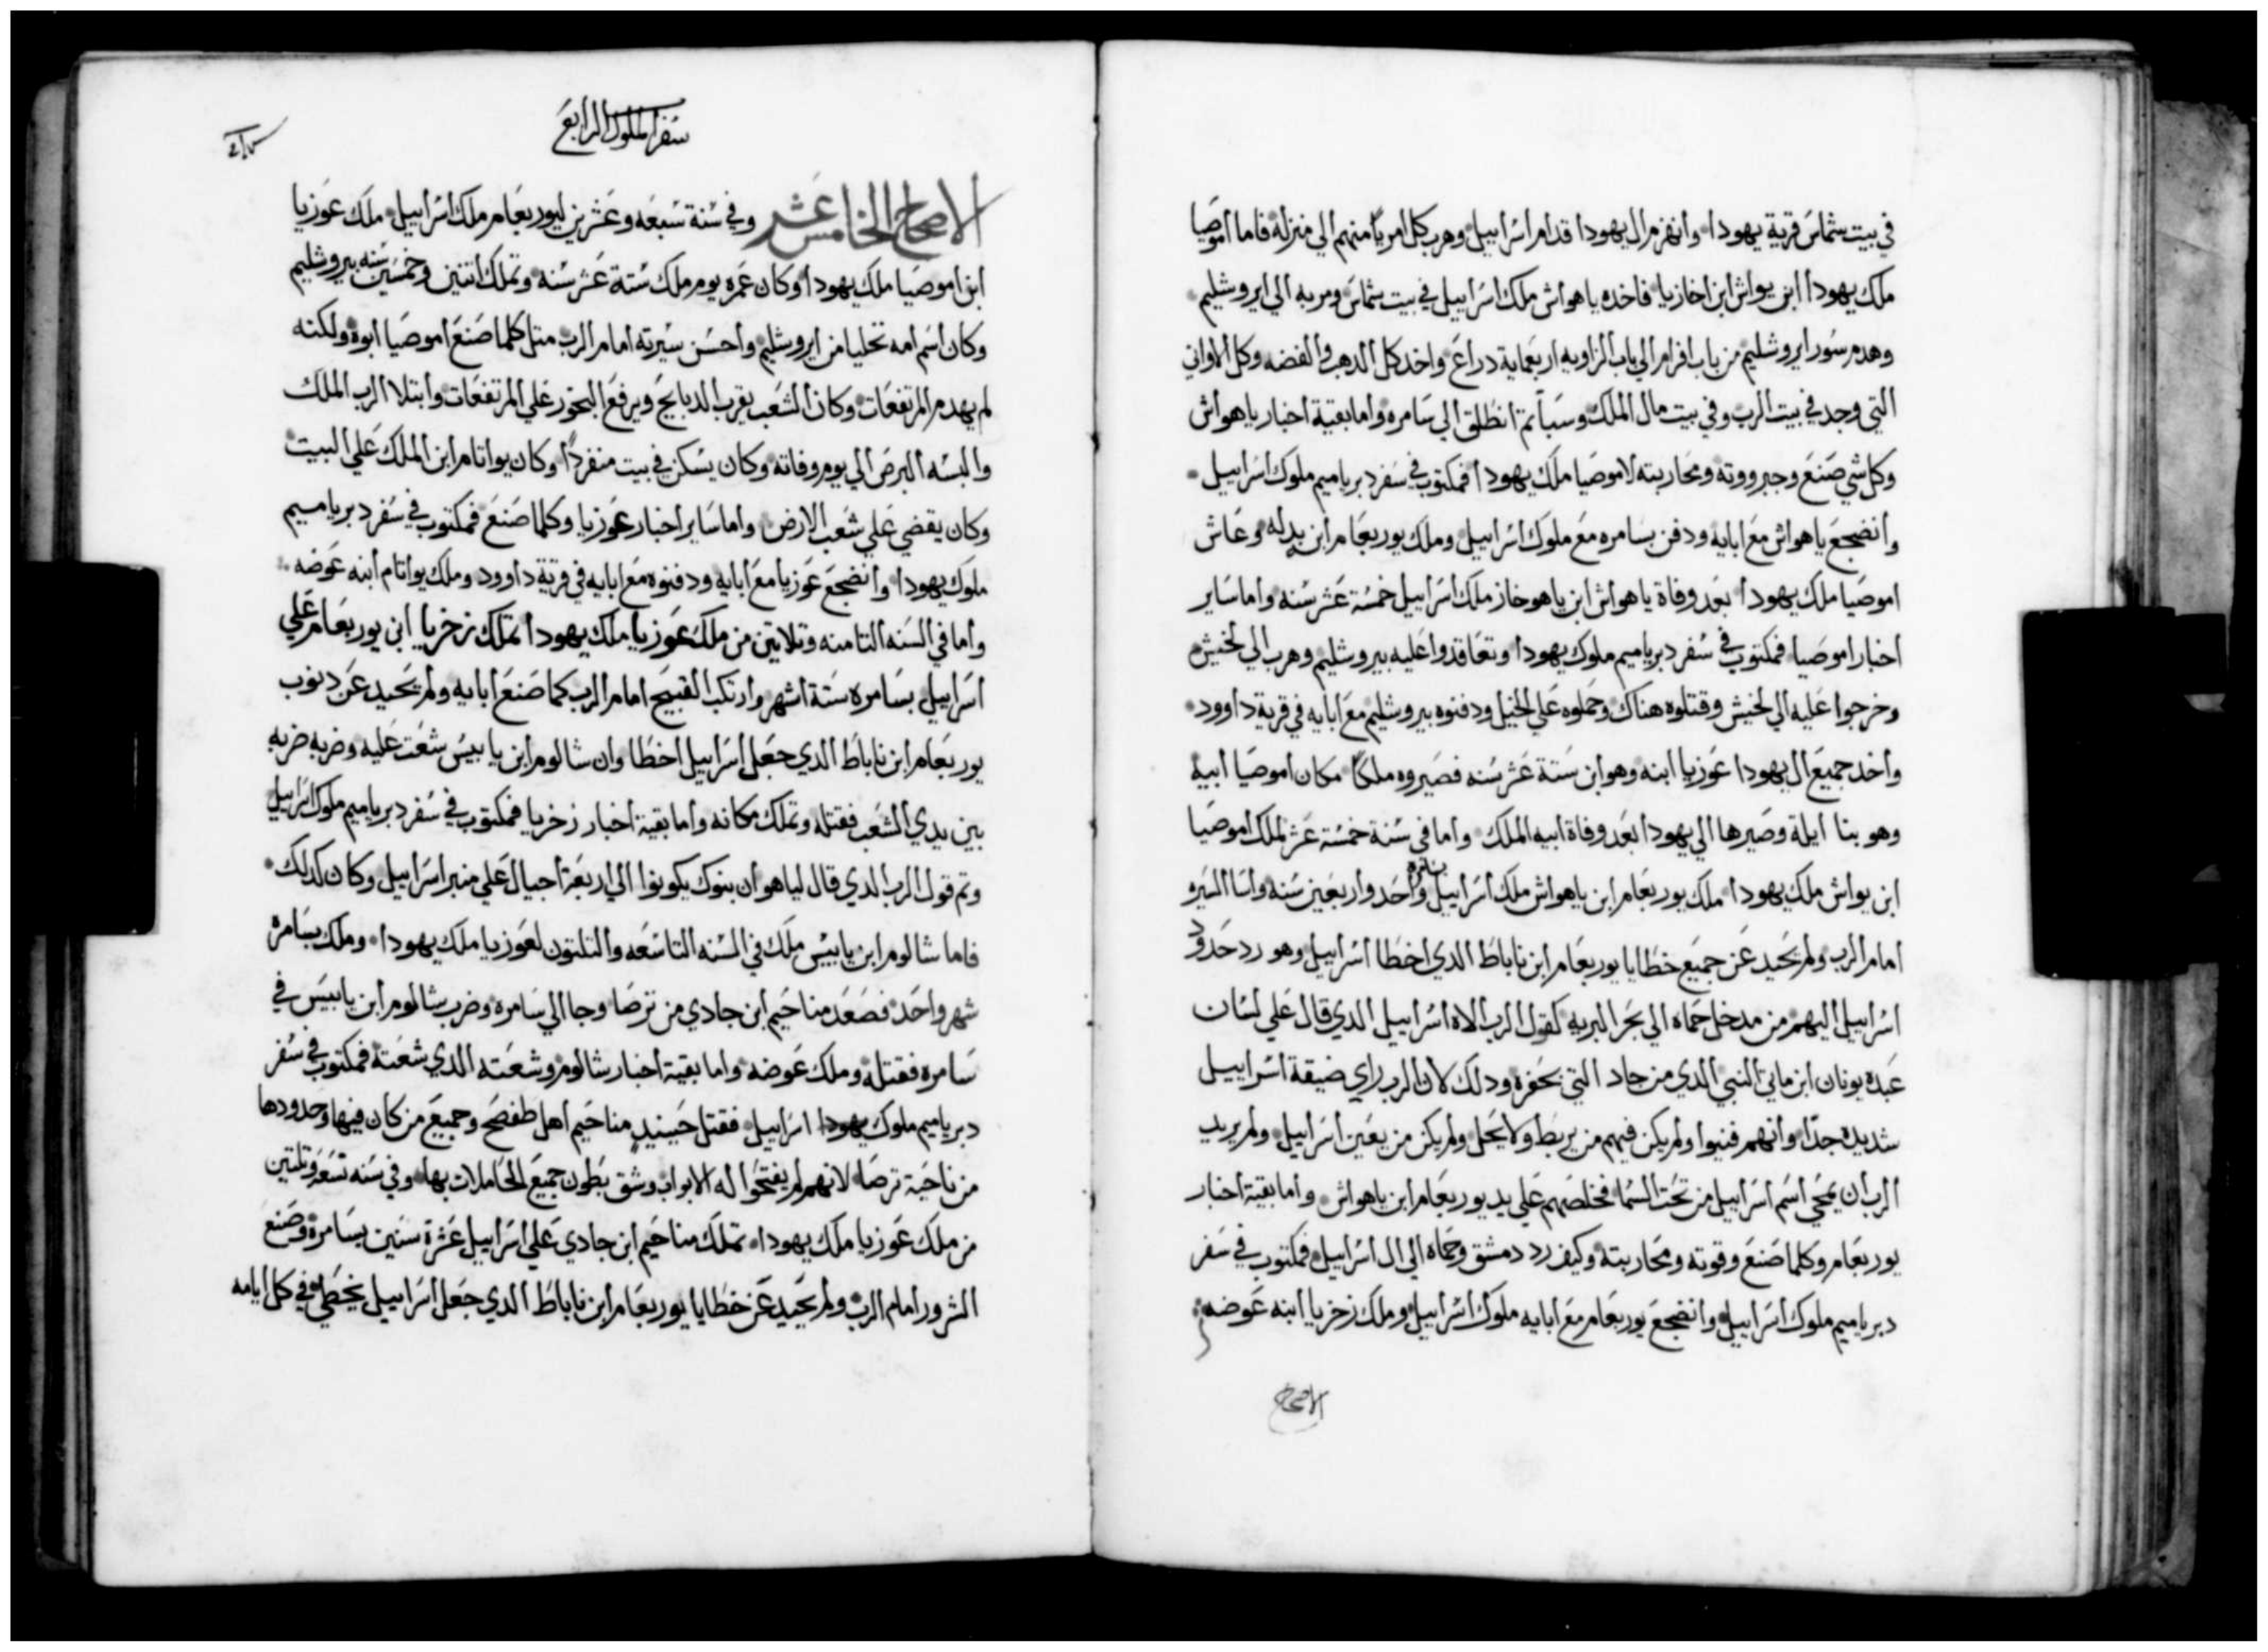 في بيت شماس قرية يهودا وانهزم ال يهودا قدام اسراييل وهرب كل امريًا منهم الي منزله فاما اموصيا
ملك يهودا ابن يواش ابن اخازيا فاخده ياهواش ملك اسراييل في بيت شماس ومر به الي ايروشليم
وهدم سور ايروشليم من باب افرام الي باب الزاويه اربعماية دراع واخد كل الدهب والفضه وكل الاواني
التي وجد في بيت الرب وفي بيت مال الملك وسبا تم انطلق الي سامره واما بقية اخبار ياهواش
وكل شي صنع وجبرووته ومحاربته لاموصيا ملك يهودا فمكتوب في سفر دبرياميم ملوك اسراييل
وانضجع ياهواش مع ابايه ودفن بسامره مع ملوك اسراييل وملك يوربعام ابن بدله وعاش
اموصيا ملك يهودا بعد وفاة ياهواش ابن ياهوخاز ملك اسراييل خمسة عشر سنه واما ساير
اخبار اموصيا فمكتوب في سفر دبرياميم ملوك يهودا وتعاقدوا عليه بيروشليم وهرب الي لخيش
وخرجوا عليه الي لخيش وقتلوه هناك وحملوه علي الخيل ودفنوه بيروشليم مع ابايه في قرية داوود
واخد جميع ال يهودا عوزيا ابنه وهو ابن ستة عشر سنه فصيروه ملكًا مكان اموصيا ابيه
وهو بنا ايلة وصيرها الي يهودا بعد وفاة ابيه الملك واما في سنة خمسة عشر لملك اموصيا
ابن يواش ملك يهودا ملك يوربعام ابن ياهواش ملك اسراييل بسامره واحد واربعين سنه واسا السيره
امام الرب ولم يحيد عن جميع خطايا يوربعام ابن ناباط الدي اخطا اسراييل وهو رد حدود
اسراييل اليهم من مدخل حماه الي بحر البريه كقول الرب الاه اسراييل الدي قال علي لسان
عبده يونان ابن ماتي النبي الدي من جاد التي بحفره ودلك لان الرب راي ضيقة اسراييل
شديده جدًا وانهم فنيوا ولم يكن فيهم من يربط ولا يحل ولم يكن من يعين اسراييل ولم يريد
الرب ان يمحي اسم اسراييل من تحت السما فخلصهم علي يد يوربعام ابن ياهواش واما بقية اخبار
يوربعام وكلما صنع وقوته ومحاربته وكيف رد دمشق وحماه الي ال اسراييل فمكتوب في سفر
دبرياميم ملوك اسراييل وانضجع يوربعام مع ابايه ملوك اسراييل وملك زخريا ابنه عوضه
الاصحاح
سفر الملوك الرابع
الاصحاح الخامس عشر وفي سنة سبعه وعشرين ليوربعام ملك اسراييل ملك عوزيا
ابن اموصيا ملك يهودا وكان عمره يوم ملك ستة عشر سنه وتملك اتنين وخمسين سنه بيروشليم
وكان اسم امه تحليا من ايروشليم واحسن سيرته امام الرب متل كلما صنع اموصيا ابوه ولكنه
لم يهدم المرتفعات وكان الشعب يقرب الدبايح ويرفع البخور علي المرتفعات وابتلا الرب الملك
والبسه البرص الي يوم وفاته وكان يسكن في بيت منفردًا وكان يواتام ابن الملك علي البيت
وكان يقضي علي شعب الارض واما ساير اخبار عوزيا وكلما صنع فمكتوب في سفر دبرياميم
ملوك يهودا وانضجع عوزيا مع ابايه ودفنوه مع ابايه في قرية داوود وملك يواتام ابنه عوضه
واما في السنه التامنه وتلاتين من ملك عوزيا ملك يهودا تملك زخريا ابن يوربعام علي
اسراييل بسامره ستة اشهر وارتكب القبيح امام الرب كما صنع ابايه ولم يحيد عن دنوب
يوربعام ابن ناباط الدي جعل اسراييل اخطا وان شالوم ابن يابيس شعت عليه وضربه ضربه
بين يدي الشعب فقتله وتملك مكانه واما بقية اخبار زخريا فمكتوب في سفر دبرياميم ملوك اسراييل
وتم قول الرب الدي قال لياهو ان بنوك يكونوا الي اربعة اجيال علي منبر اسراييل وكان كدلك
فاما شالوم ابن يابيس ملك في السنه التاسعه والتلتون لعوزيا ملك يهودا وملك بسامره
شهر واحد فصعد مناحيم ابن جادي من ترصا وجا الي سامره وضرب شالوم ابن يابيس في
سامره فقتله وملك عوضه واما بقية اخبار شالوم وشعته الدي شعته فمكتوب في سفر
دبرياميم ملوك يهودا اسراييل فقتل حينيد مناحيم اهل طفصح وجميع من كان فيها وحدودها
من ناحية ترصا لانهم لم يفتحوا له الابواب وشق بطون جميع الحاملات بها وفي سنه تسعه وتلتين
من ملك عوزيا ملك يهودا تملك مناحيم ابن جادي علي اسراييل عشرة سنين بسامره وصنع
الشرور امام الرب ولم يحيد عن خطايا يوربعام ابن ناباط الدي جعل اسراييل يخطي في كل ايامه